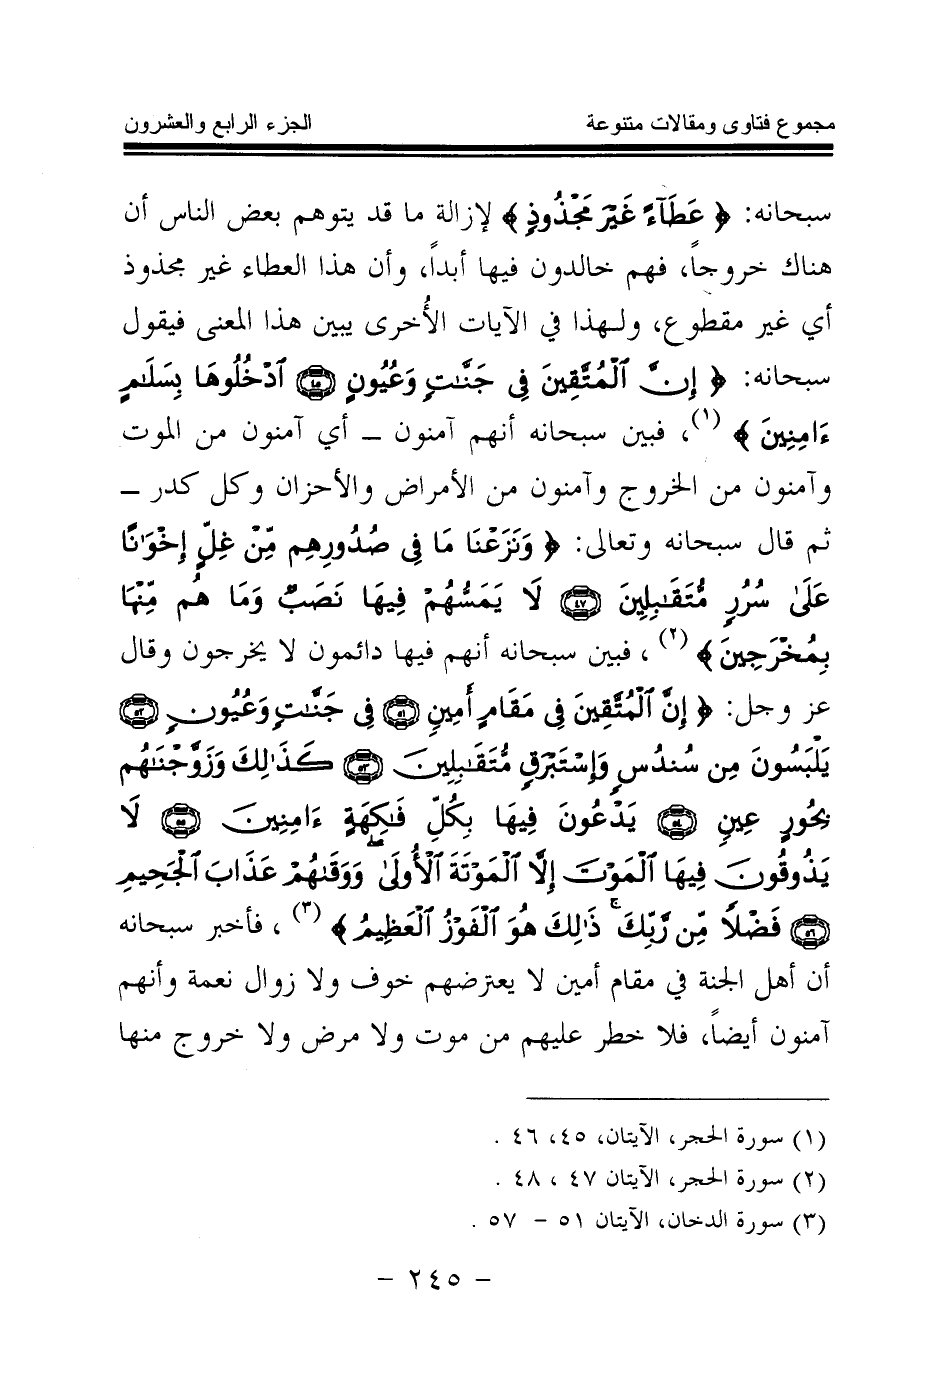 مجموع فتاوى ومقالات متنوعة الجزء الرابع والعشرون
سبحانه: ﴿ عَطَآءً غَيْرَ مَجْذُوذٍ ﴾ لإزالة ما قد يتوهم بعض الناس أن
هناك خروجاً، فهم خالدون فيها أبداً، وأن هذا العطاء غير مجذوذ
أي غير مقطوع، ولهذا في الآيات الأُخرى يبين هذا المعنى فيقول
سبحانه: ﴿ إِنَّ ٱلْمُتَّقِينَ فِى جَنَّٰتٍ وَعُيُونٍ ﴿٤٥﴾ ٱدْخُلُوهَا بِسَلَٰمٍ
ءَامِنِينَ ﴾ (١)، فبين سبحانه أنهم آمنون – أي آمنون من الموت
وآمنون من الخروج وآمنون من الأمراض والأحزان وكل كدر –
ثم قال سبحانه وتعالى: ﴿ وَنَزَعْنَا مَا فِى صُدُورِهِم مِّنْ غِلٍّ إِخْوَٰنًا
عَلَىٰ سُرُرٍ مُّتَقَٰبِلِينَ ﴿٤٧﴾ لَا يَمَسُّهُمْ فِيهَا نَصَبٌ وَمَا هُم مِّنْهَا
بِمُخْرَجِينَ ﴾ (٢) ، فبين سبحانه أنهم فيها دائمون لا يخرجون وقال
عز وجل: ﴿ إِنَّ ٱلْمُتَّقِينَ فِى مَقَامٍ أَمِينٍ ﴿٥١﴾ فِى جَنَّٰتٍ وَعُيُونٍ ﴿٥٢﴾
يَلْبَسُونَ مِن سُندُسٍ وَإِسْتَبْرَقٍ مُّتَقَٰبِلِينَ ﴿٥٣﴾ كَذَٰلِكَ وَزَوَّجْنَٰهُم
بِحُورٍ عِينٍ ﴿٥٤﴾ يَدْعُونَ فِيهَا بِكُلِّ فَٰكِهَةٍ ءَامِنِينَ ﴿٥٥﴾ لَا
يَذُوقُونَ فِيهَا ٱلْمَوْتَ إِلَّا ٱلْمَوْتَةَ ٱلْأُولَىٰ ۖ وَوَقَىٰهُمْ عَذَابَ ٱلْجَحِيمِ
﴿٥٦﴾ فَضْلًا مِّن رَّبِّكَ ۚ ذَٰلِكَ هُوَ ٱلْفَوْزُ ٱلْعَظِيمُ ﴾ (٣) ، فأخبر سبحانه
أن أهل الجنة في مقام أمين لا يعترضهم خوف ولا زوال نعمة وأنهم
آمنون أيضاً، فلا خطر عليهم من موت ولا مرض ولا خروج منها
(١) سورة الحجر، الآيتان، ٤٥، ٤٦ .
(٢) سورة الحجر، الآيتان ٤٧ ، ٤٨ .
(٣) سورة الدخان، الآيتان ٥١ – ٥٧ .
– ٢٤٥ –